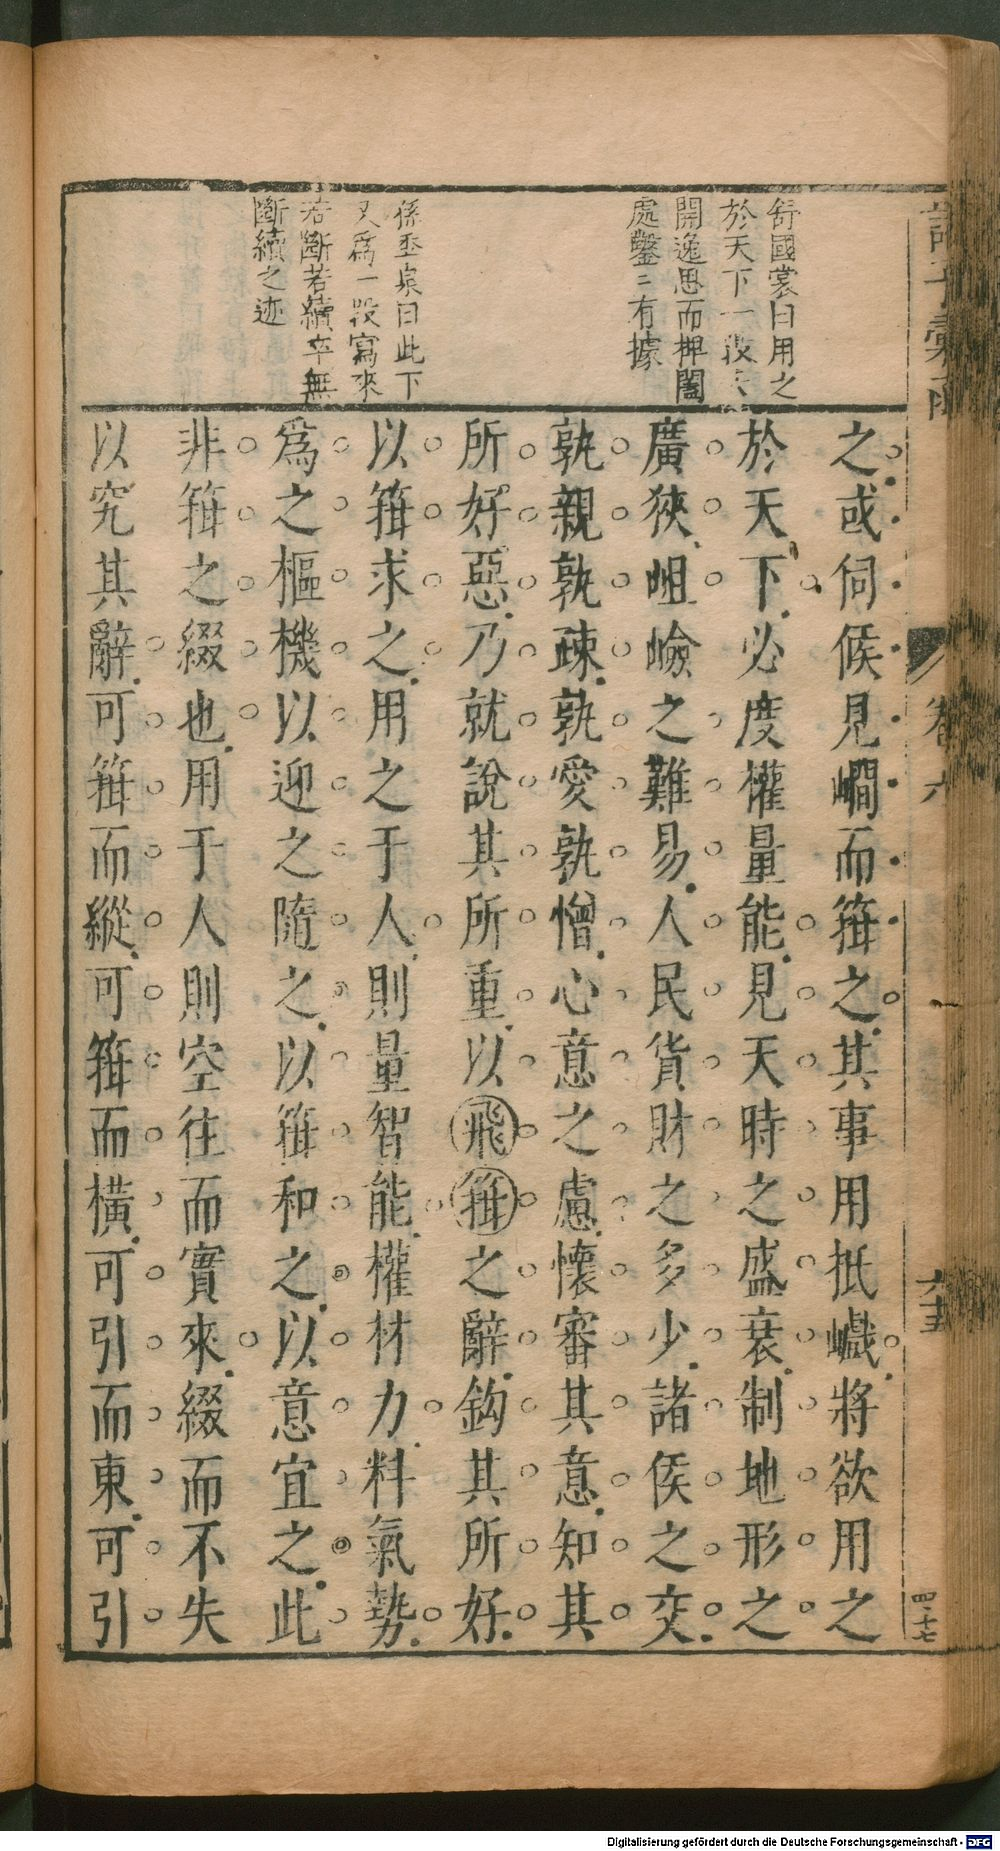 舒國裳曰用之
於天下一段
開逸思而捭闔
處鑿〻有據
孫丕泉曰此下
又爲一段寫來
若斷若續卒無
斷續之迹
之或伺候見㵎而箝之其事用抵巇將欲用之
於天下必度權量能見天時之盛衰制地形之
廣狹岨嶮之難易人民貨財之多少諸侯之交
孰親孰疎孰愛孰憎心意之慮懷審其意知其
所好惡乃就說其所重以飛箝之辭鈎其所好
以箝求之用之于人則量智能權材力料氣勢
爲之樞機以迎之隨之以箝和之以意宜之此
非箝之綴也用于人則空往而實來綴而不失
以究其辭可箝而縱可箝而橫可引而東可引
卷六
六十五
四·十七
Digitalisierung gefördert durch die Deutsche Forschungsgemeinschaft - DFG